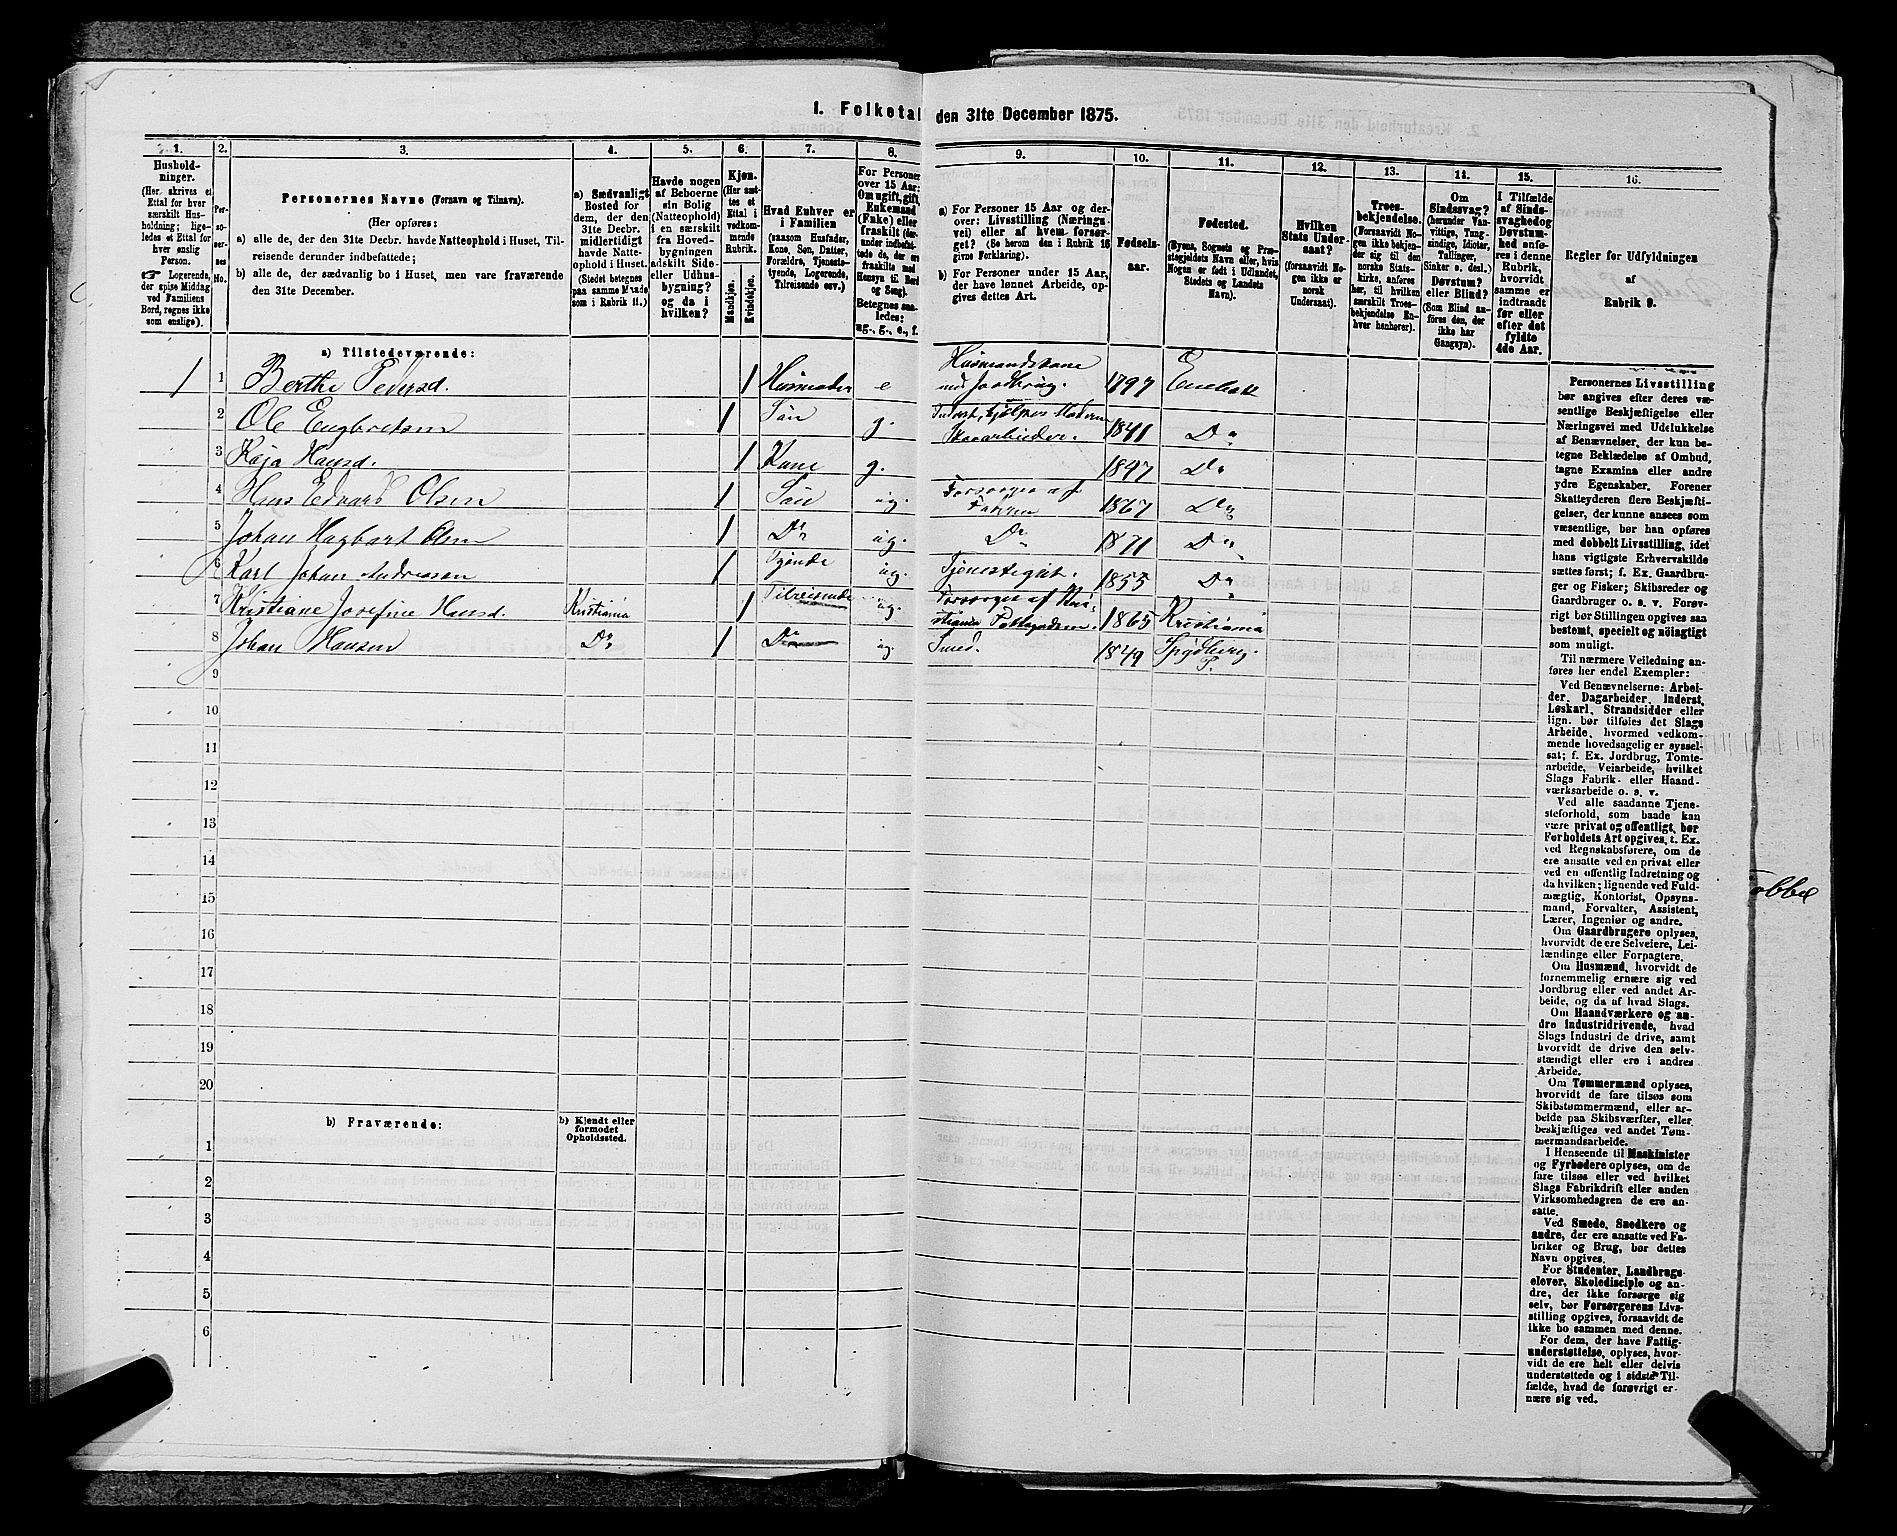 1. Folketal den 31te December 1875.
1.
Hushold-
ninger.
(Her skrives et
Ettal for hver
særskilt Hus-
holdning; lige-
ledes et Ettal for
hver enslig
Person.
☞ Logerende,
der spise Middag
ved Familiens
Bord, regnes ikke
som enslige).
2.
Per-
so-
ner-
nes
No.
3.
Personernes Navne (Fornavn og Tilnavn).
(Her opføres:
a) alle de, der den 31te Decbr. havde Natteophold i Huset, Til-
reisende derunder indbefattede;
b) alle de, der sædvanlig bo i Huset, men vare fraværende
den 31te December.
4.
a) Sædvanligt
Bosted for
dem, der den
31te Decbr.
midlertidigt
havde Natte-
ophold i Huset.
(Stedet betegnes
paa samme Maade
som i Rubrik 11.)
5.
Havde nogen
af Beboerne
sin Bolig
(Natteophold)
i en særskilt
fra Hoved-
bygningen
adskilt Side-
eller Udhus-
bygning?
og da i
hvilken?
6.
Kjøn.
(Her sæt-
tes et
Ettal i
vedkom-
mende
Rubrik.
Mandkjøn.
Kvindekjøn.
7.
Hvad Enhver er
i Familien
(saasom Husfader,
Kone, Søn, Datter,
Forældre, Tjeneste-
tyende, Logerende,
Tilreisende osv.).
8.
For Personer
over 15 Aar:
Om ugift, gift,
Enkemand
(Enke) eller
fraskilt (der-
under indbefat-
tede de, der ere
fraskilte med
Hensyn til Bord
og Seng).
Betegnes saa-
ledes:
ug., g., e., f.
9.
a) For Personer 15 Aar og der-
over: Livsstilling (Nærings-
vei) eller af hvem forsør-
get? (Se herom den i Rubrik 16
givne Forklaring).
b) For Personer under 15 Aar,
der have lønnet Arbeide, op-
gives dettes Art.
10.
Fødsels-
aar.
11.
Fødested.
(Byens, Sognets og Præ-
stegjeldets Navn eller, hvis
Nogen er født i Udlandet,
Stedets og Landets
Navn).
12.
Hvilken
Stats Under-
saat?
(forsaavidt No-
gen ikke er
norsk
Undersaat).
13.
Troes-
bekjendelse.
(Forsaavidt No-
gen ikke bekjen-
der sig til den
norske Stats-
kirke, anføres
her, til hvilken
særskilt Troes-
bekjendelse En-
hver henhører).
14.
Om
Sindssvag?
(herunder Van-
vittige, Tung-
sindige, Idioter,
Tullinger,
Sinker o. desl.)
Døvstum?
eller Blind?
(Som Blind an-
føres den, der
ikke har
Gangsyn).
15.
I Tilfælde
af Sinds-
svaghed og
Døvstum-
hed anfø-
res i denne
Rubrik,
hvorvidt
samme er
indtraadt
før eller
efter det
fyldte
4de Aar.
16.
Regler for Udfyldningen
af
Rubrik 9.
a) Tilstedeværende:
1 1 Berthe Pedersd. 1 Husmoder e Husmandskone med Jordbrug. 1797 Enebak
2 Ole Engbretsen 1 Søn g. Inderst, hjælper Moderen Skoarbeider. 1841 Do
3 Kaja Hansd. 1 Kone g. 1847 Do
4 Hans Edvard Olsen 1 Søn ug. Forsørges af Faderen 1867 Do
5 Johan Hagbart Olsen 1 Do ug. Do 1871 Do
6 Karl Johan Andreasen 1 Tyende ug. Tjenestegut. 1855 Do
7 Kristiane Josefine Hansd. Kristiania 1 Tilreisende ug. Forsørges af Kri- stiania Fattigvæsen. 1865 Kristiania
8 Johan Hansen Do 1 Do ug. Smed. 1849 Spydeberg P.
9
10
11
12
13
14
15
16
17
18
19
20
b) Fraværende:
b) Kjendt eller
formodet
Opholdssted.
1
2
3
4
5
6
Personernes Livsstilling
bør angives efter deres væ-
sentlige Beskjæftigelse eller
Næringsvei med Udelukkelse
af Benævnelser, der kun be-
tegne Beklædelse af Ombud,
tagne Examina eller andre
ydre Egenskaber. Forener
Skatteyderen flere Beskjæfti-
gelser, der kunne ansees som
væsentlige, bør han opføres
med dobbelt Livsstilling, idet
hans vigtigste Erhvervskilde
sættes først; f. Ex. Gaardbru-
ger og Fisker; Skibsreder og
Gaardbruger o. s. v. Forøv-
rigt bør Stillingen opgives saa
bestemt, specielt og nøiagtigt
som muligt.
Til nærmere Veiledning an-
føres her endel Exempler:
Ved Benævnelserne: Arbei-
der, Dagarbeider, Inderst,
Løskarl, Strandsidder eller
lign. bør tilføies det Slags
Arbeide, hvormed vedkom-
mende hovedsagelig er syssel-
sat; f. Ex. Jordbrug, Tomte-
arbeide, Veiarbeide, hvilket
Slags Fabrik- eller Haand-
værksarbeide o. s. v.
Ved alle saadanne Tjene-
steforhold, som baade kan
være privat og offentligt, bør
Forholdets Art opgives, t. Ex.
ved Regnskabsførere, om de
ere ansatte ved en privat eller
ved en offentlig Indretning og
da hvilken; lignende ved Fuld-
mægtig, Kontorist, Opsyns-
mand, Forvalter, Assistent,
Lærer, Ingeniør og andre.
Om Gaardbrugere oplyses,
hvorvidt de ere Selveiere, Lei-
lændinge eller Forpagtere.
Om Husmænd, hvorvidt de
fornemmelig ernære sig ved
Jordbrug eller ved andet Ar-
beide, og da af hvad Slags.
Om Haandværkere og an-
dre industridrivende, hvad
Slags Industri de drive, samt
hvorvidt de drive den selv-
stændigt eller ere i andres
Arbeide.
Om Tømmermænd oplyses,
hvorvidt de fare tilsøs som
Skibstømmermænd, eller ar-
beide paa Skibsværfter, eller
beskjæftiges ved andet Tøm-
mermandsarbeide.
I Henseende til Maskinister
og Fyrbødere oplyses, om de
fare tilsøs eller ved hvilket
Slags Fabrikdrift eller anden
Virksomhedsgren de ere an-
satte.
Ved Smede, Snedkere og
andre, der ere ansatte ved Fa-
briker og Brug, bør dettes
Navn opgives.
For Studenter, Landbrugs-
elever, Skoledisciple og an-
dre, der ikke forsørge sig
selv, bør Forsørgerens Livs-
stilling opgives, forsaavidt de
ikke bo sammen med denne.
For dem, der have Fattig-
understøttelse, oplyses, hvor-
vidt de ere helt eller delvis
understøttede og i sidste Til-
fælde, hvad de forøvrigt er-
nære sig ved.